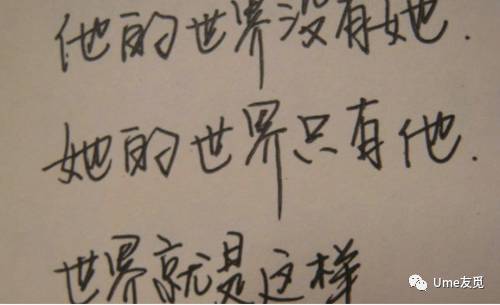 他的世界没有她.
她的世界只有他.
世界就是这样
Ume友觅